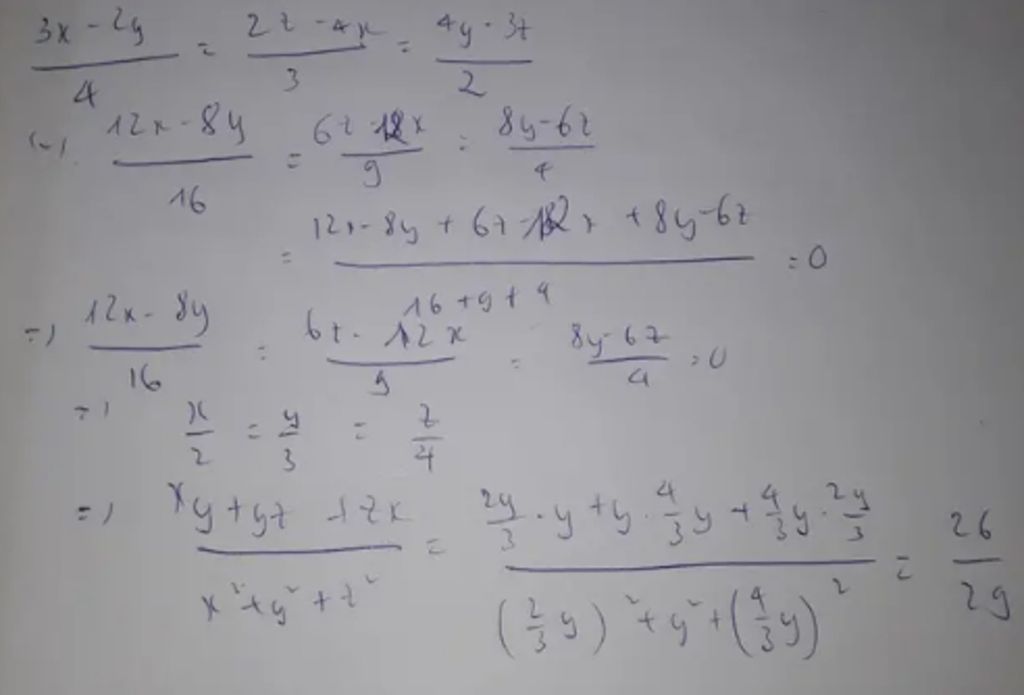 (3x - 2y)/4 = (2z - 4x)/3 = (4y - 3z)/2
=> (12x - 8y)/16 = (6z - 12x)/9 = (8y - 6z)/4
= (12x - 8y + 6z - 12x + 8y - 6z)/(16 + 9 + 4) = 0
=> (12x - 8y)/16 = (6z - 12x)/9 = (8y - 6z)/4 = 0
=> x/2 = y/3 = z/4
=> (xy + yz + zx)/(x² + y² + z²) = (2y/3 · y + y · 4/3 y + 4/3 y · 2y/3)/((2/3 y)² + y² + (4/3 y)²) = 26/29